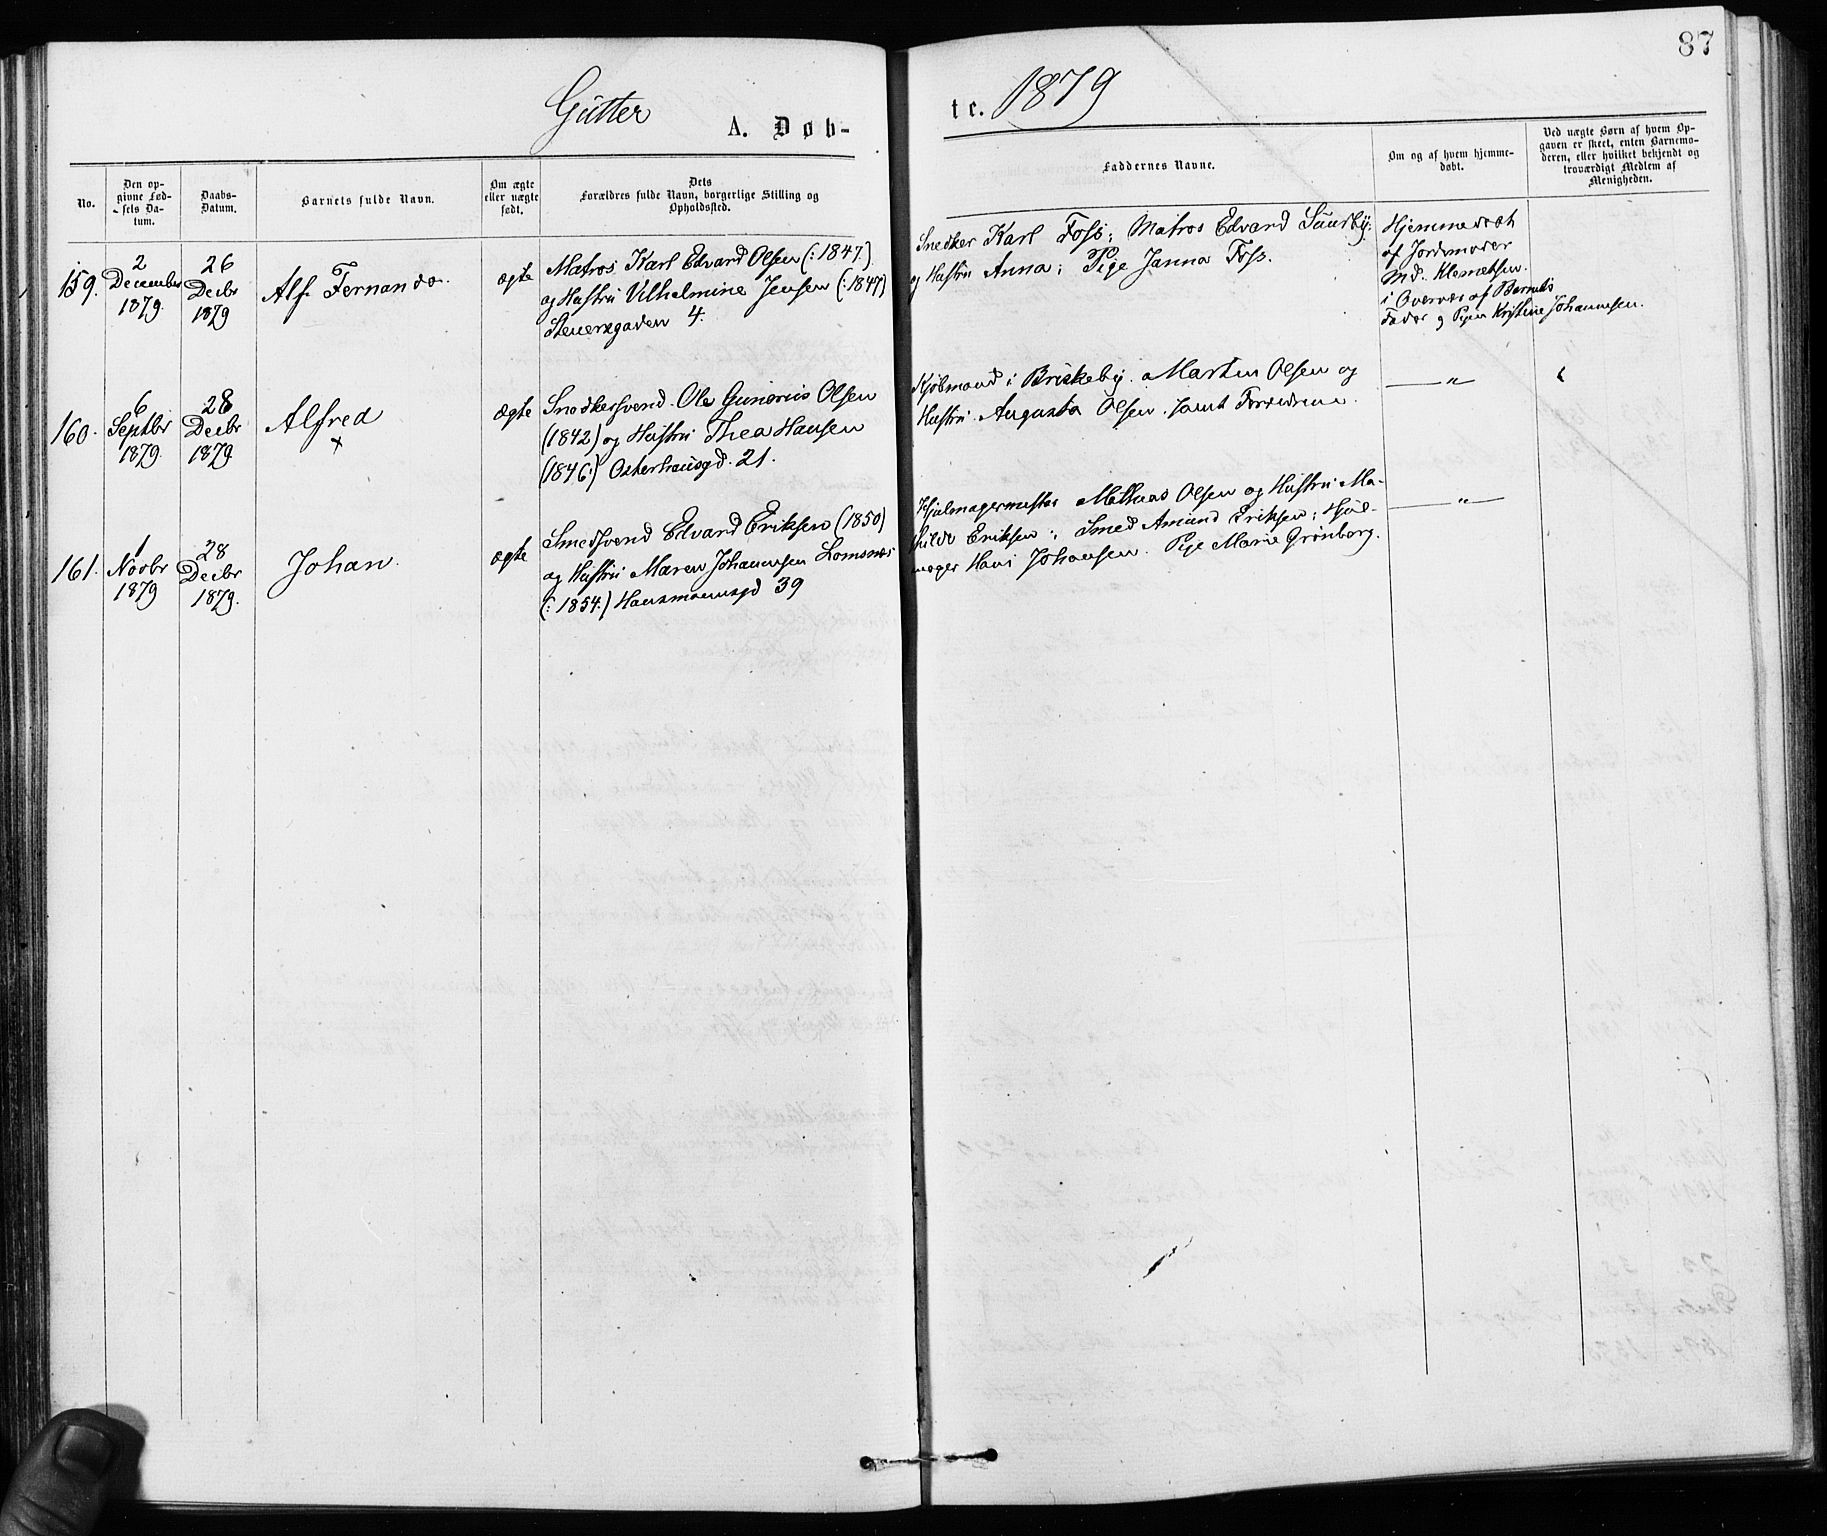 87
Gutter
A. Døb-
te. 1879
No.
Den op-
givne Fød-
sels Da-
tum.
Daabs-
Datum.
Barnets fulde Navn.
Om ægte
eller uægte
født.
Dets
Forældres fulde Navn, borgerlige Stilling og
Opholdssted.
Faddernes Navne.
Om og af hvem hjemme-
døbt.
Ved uægte Børn af hvem Op-
gaven er skeet, enten Barnemo-
deren, eller hvilket bekjendt og
troværdigt Medlem af
Menigheden.
159.
2
December
1879.
26
Decbr
1879
Alf Fernando.
ægte
Matros Karl Edvard Olsen (: 1847)
og Hustru Vilhelmine Jensen (: 1847)
Steneragaden 4.
Snedker Karl Foss; Matros Edvard
og Hustru Anna; Pige Janna Foss.
Hjemmedøbt
af Jordemoder
Md. Klemetsen
i Overvær af Barnets
Fader og Pigen Kristine Johannesen.
160.
6
Septbr
1879.
28
Decbr
1879.
Alfred
x
ægte
Snedkersvend Ole Gunerius Olsen
(1842) og Hustru Thea Hansen
(1846:) Osterhausgd. 21.
Kjøbmand i Briskeby Martin Olsen og
Hustru Augusta Olsen samt Forældrene.
— " —
161.
1
Novbr
1879
28
Decbr
1879.
Johan.
ægte
Smedsvend Edvard Eriksen (1850)
og Hustru Maren Johannesen Lomsnæs
(: 1854:) Hausmannsgd 39
Hjulmagermester Mathias Olsen og Hustru Ma-
thilde Eriksen; Smed Amund Eriksen; Hjul-
mager Hans Johansen. Pige Marie Grønborg.
— " —